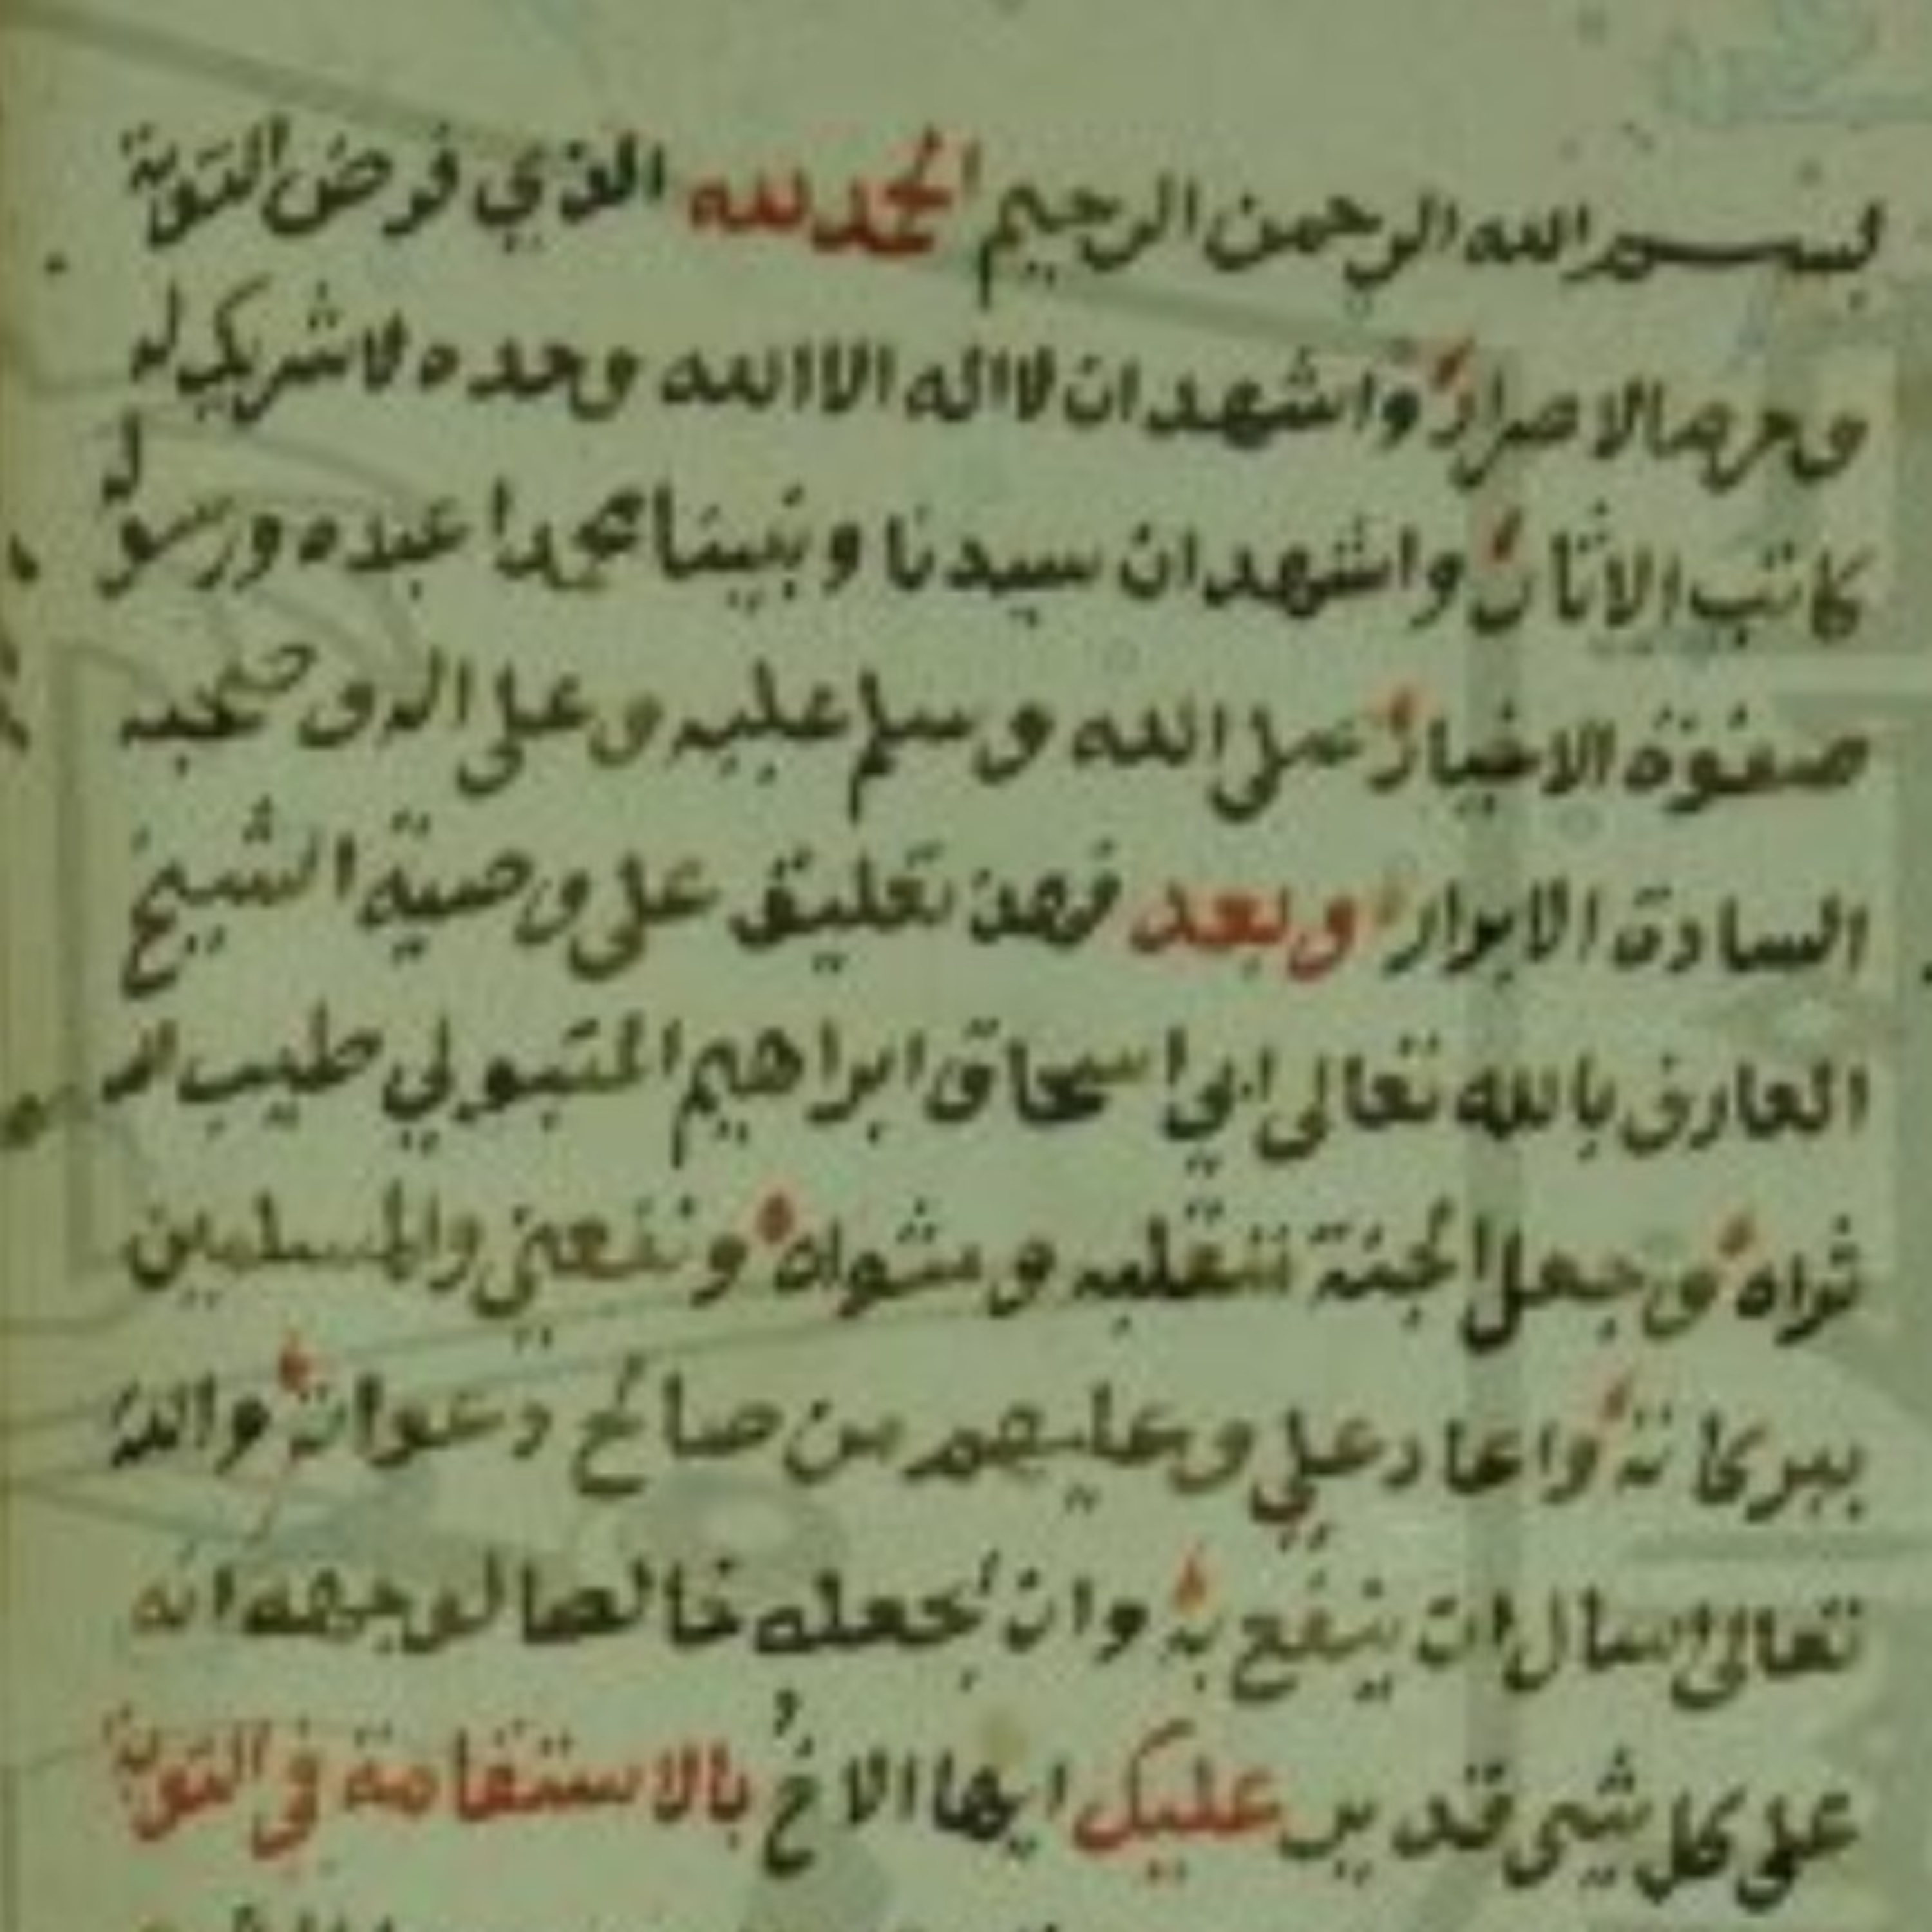 بسم الله الرحمن الرحيم الحمد لله الذي فرض التوبة
وحرم الاصرار واشهد ان لا اله الا الله وحده لا شريك له
كاتب الاثار واشهد ان سيدنا ونبينا محمدا عبده ورسوله
صفوة الاخيار صلى الله وسلم عليه وعلى اله وصحبه
السادة الابرار وبعد فهذ تعليق على وصية الشيخ
العارف بالله تعالى ابي اسحاق ابراهيم المتبولي طيب الله
ثراه وجعل الجنة متقلبه ومثواه ونفعني والمسلمين
ببركاته واعاد علي وعليهم من صالح دعواته والله
تعالى اسال ان ينفع به وان يجعله خالصا لوجهه انه
على كل شي قدير عليك ايها الاخ بالاستقامة في التوبة